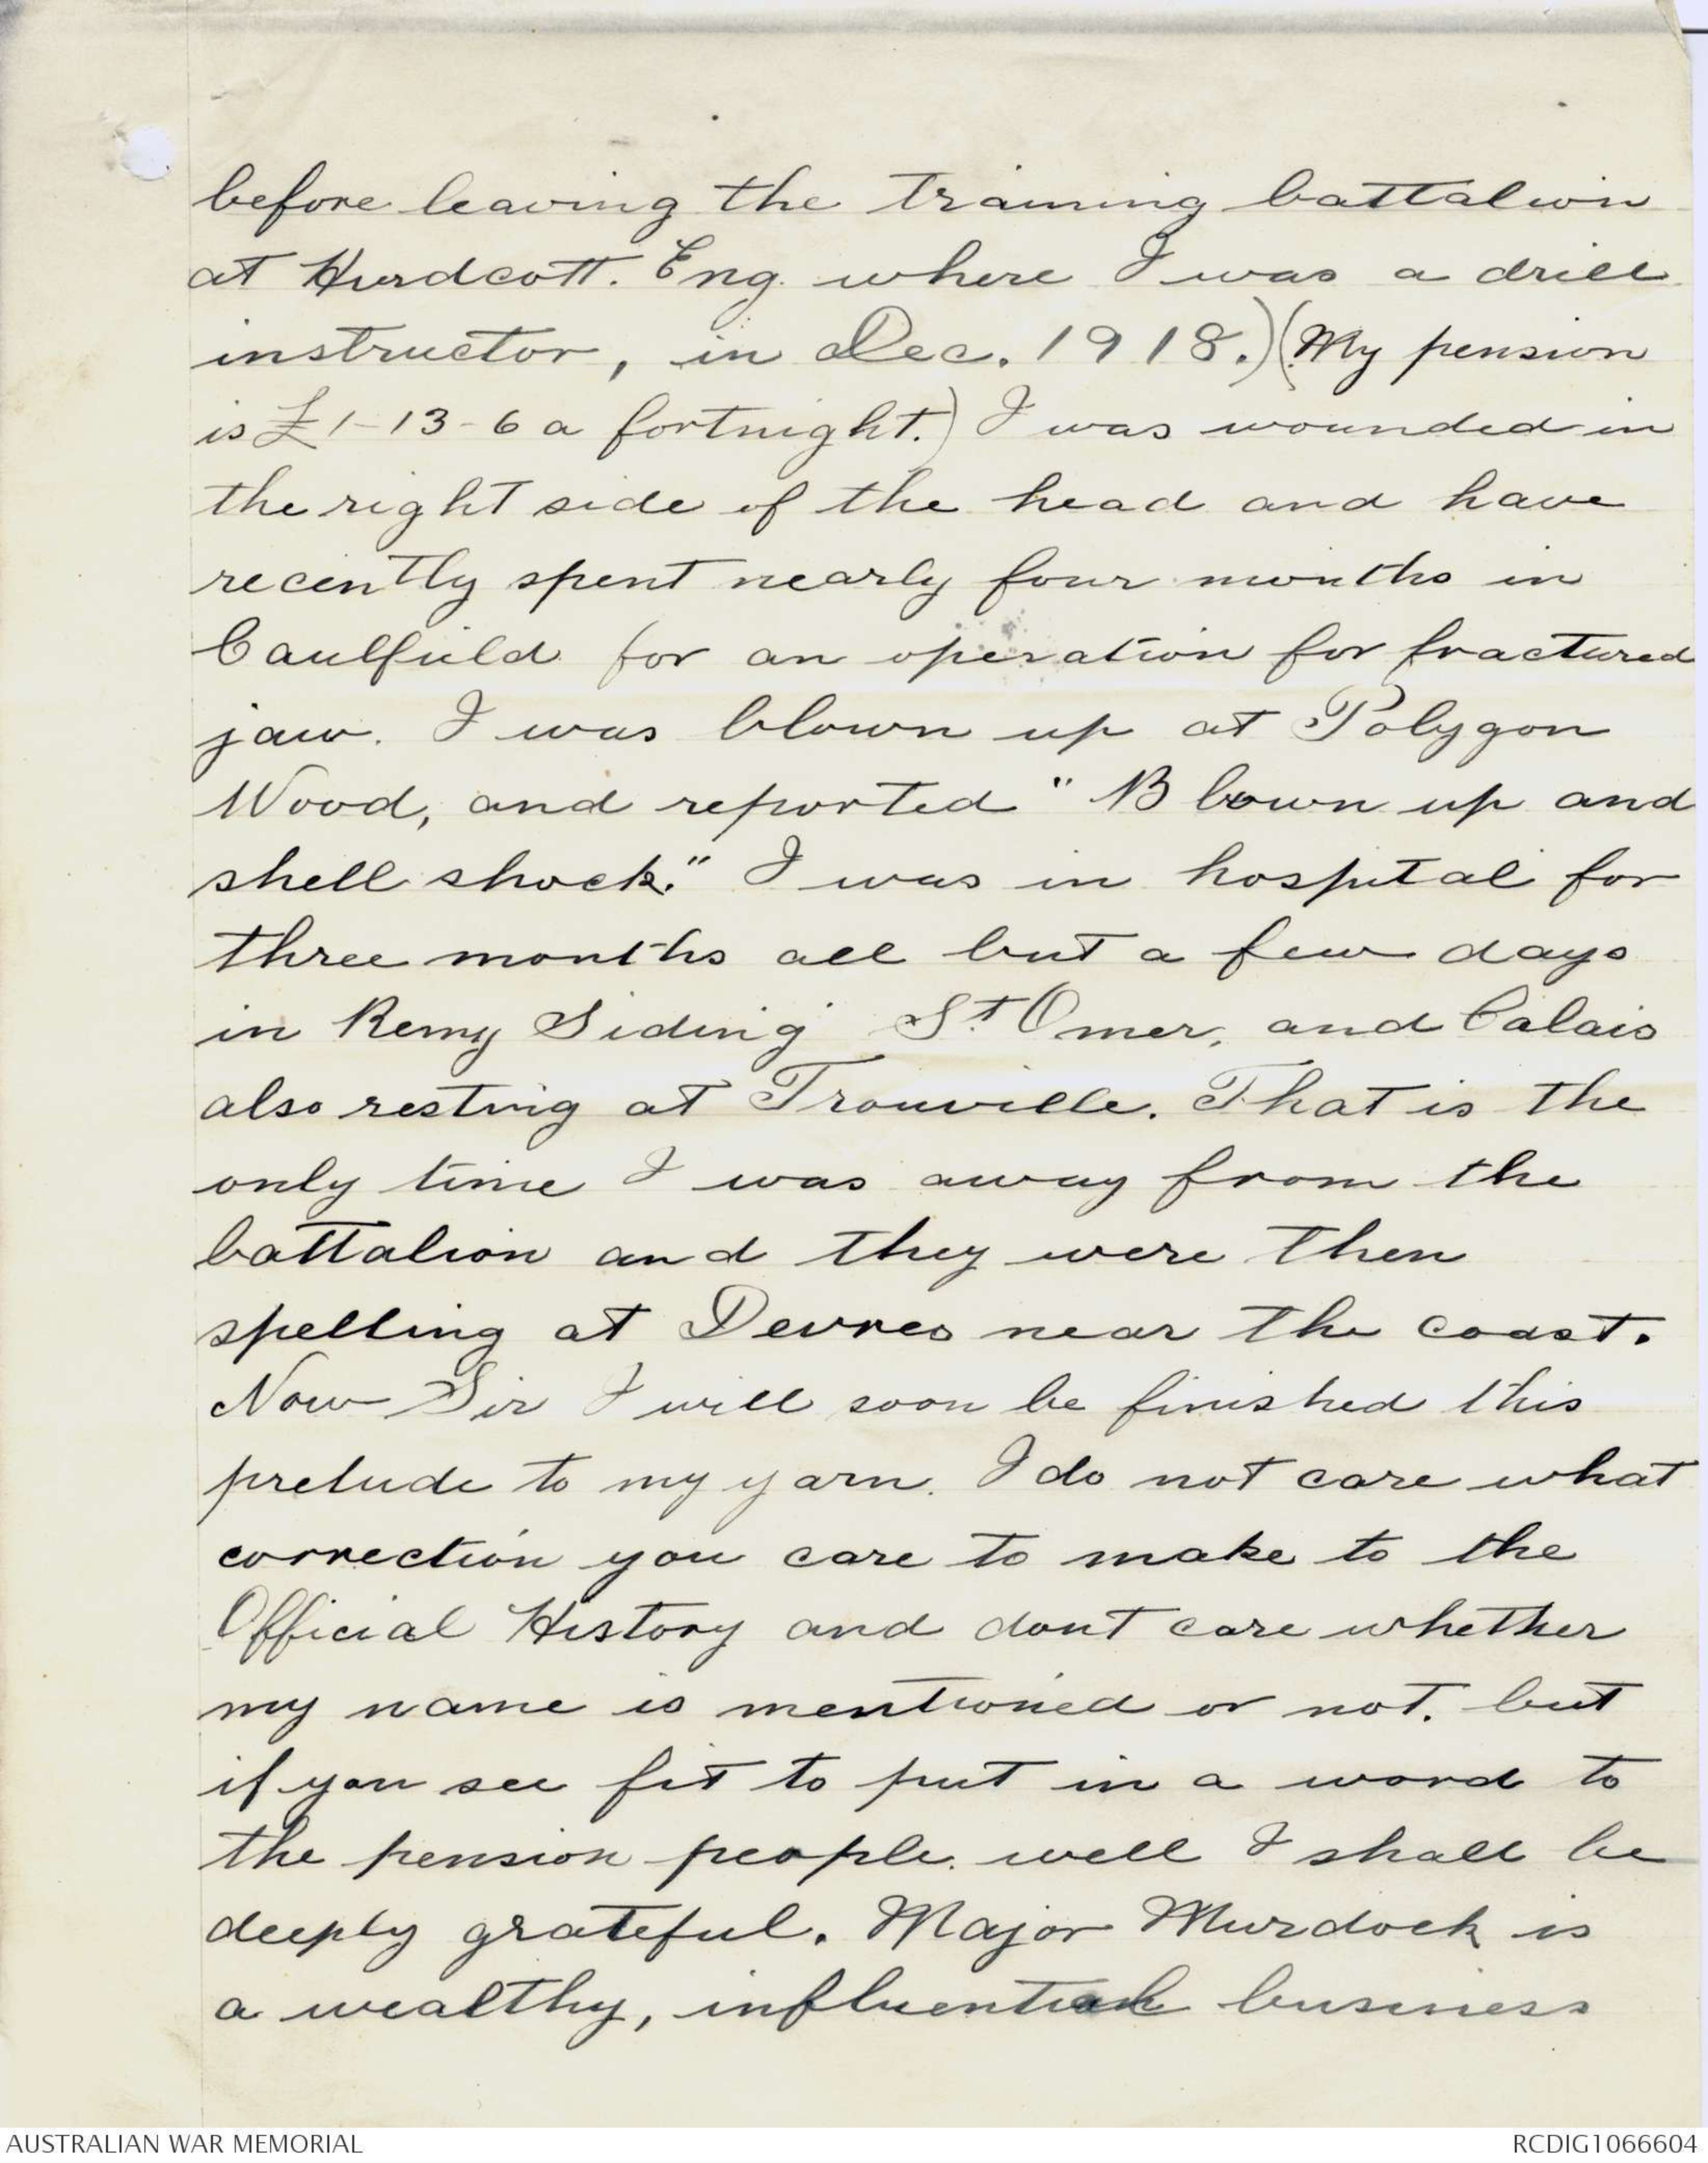 before leaving the training battalion
at Hurdcott. Eng. where I was a drill
instructor, in Dec. 1918.) (My pension
is £1-13-6 a fortnight.) I was wounded in
the right side of the head and have
recently spent nearly four months in
Caulfield for an operation for fractured
jaw. I was blown up at Polygon
Wood, and reported "Blown up and
shell shock." I was in hospital for
three months all but a few days
in Remy Siding St. Omer, and Calais
also resting at Trouville. That is the
only time I was away from the
battalion and they were then
spelling at Devres near the coast.
Now Sir I will soon be finished this
prelude to my yarn. I do not care what
correction you care to make to the
Official History and dont care whether
my name is mentioned or not. but
if you see fit to put in a word to
the pension people. well I shall be
deeply grateful. Major Murdock is
a wealthy, influential business
AUSTRALIAN WAR MEMORIAL
RCDIG1066604